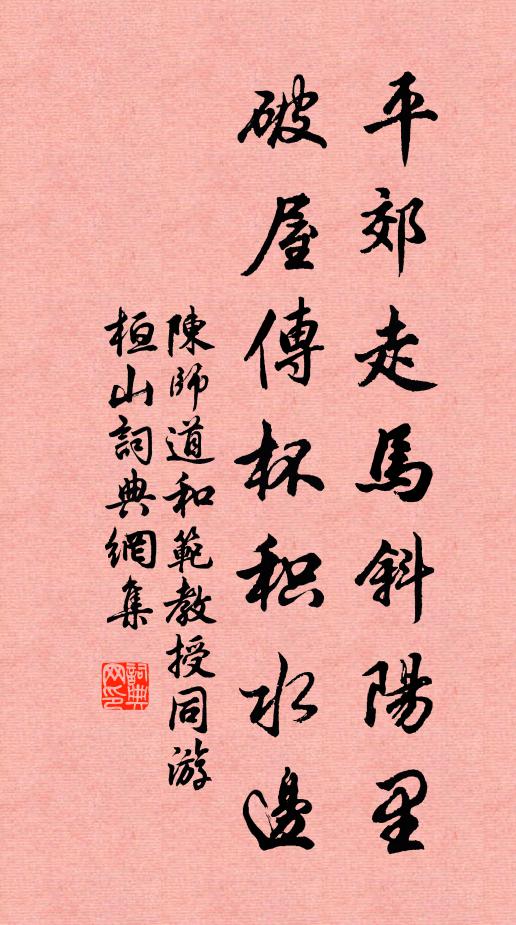 平郊走馬斜陽里
破屋傳杯积水邊
陳師道和範教授同游
桓山詞典網集
詞典網印